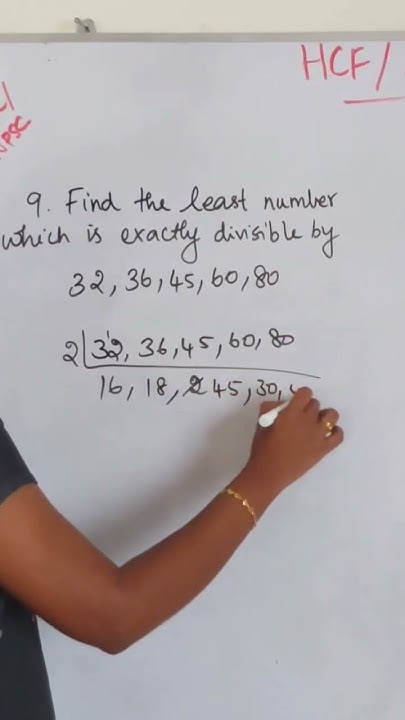 HCF/
9. Find the least number
which is exactly divisible by
32, 36, 45, 60, 80
2 32, 36, 45, 60, 80
16, 18, 45, 30,